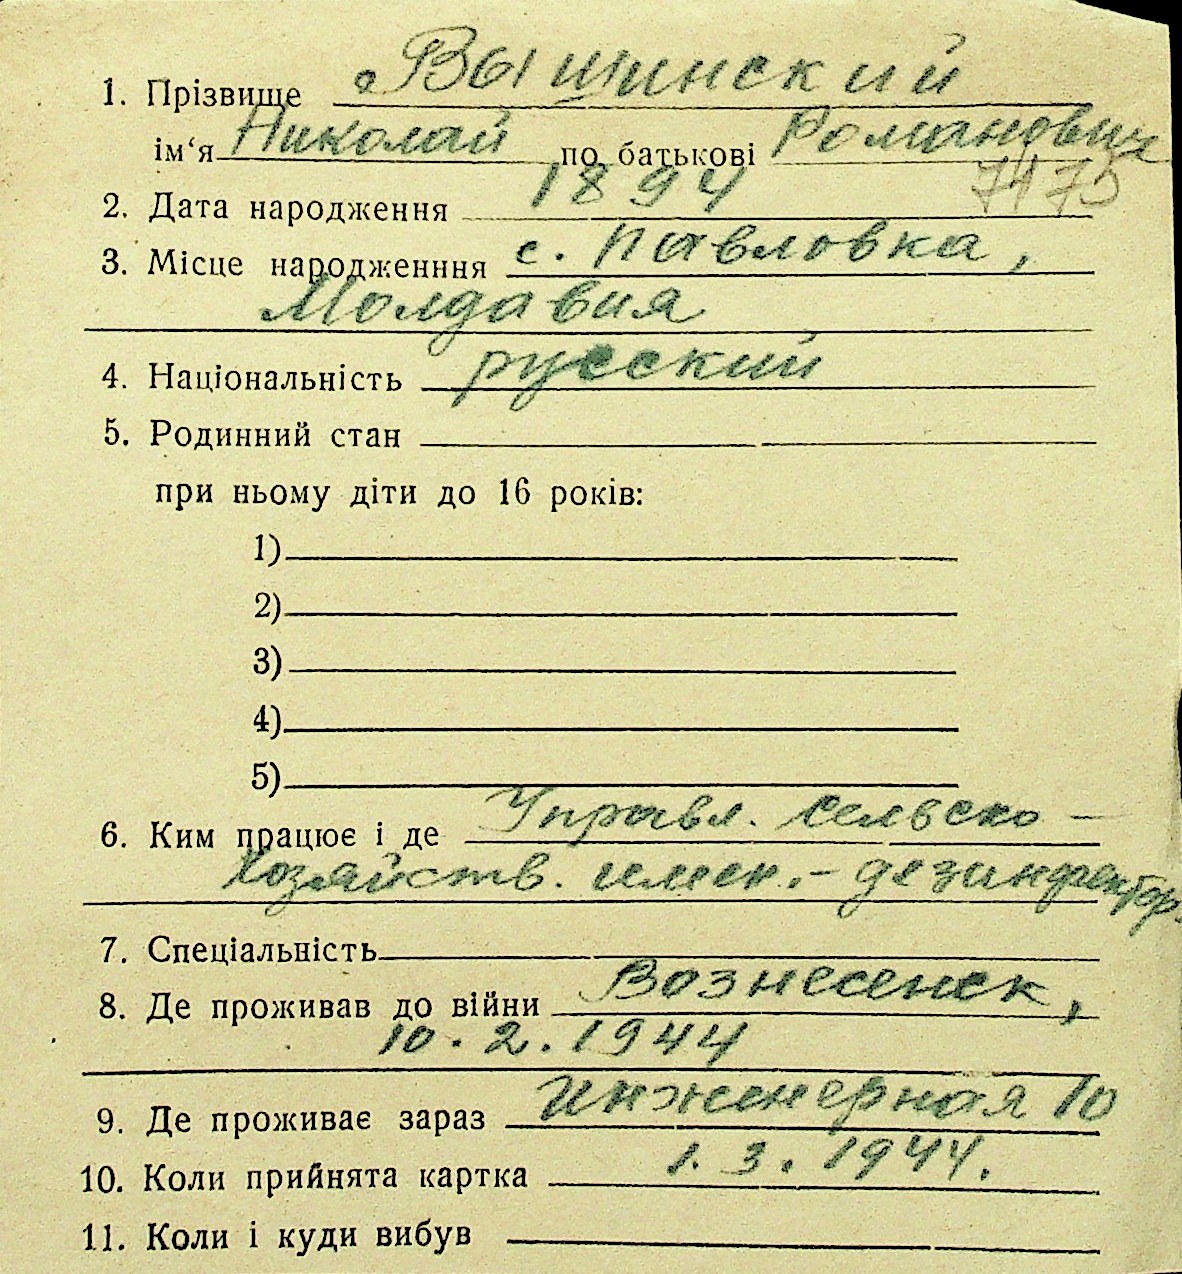 1. Прізвище Вышинский
ім‘я Николай по батькові Романович
7473
2. Дата народження 1894
3. Місце народженння с. Павловка,
Молдавия
4. Національність русский
5. Родинний стан
при ньому діти до 16 років:
1)
2)
3)
4)
5)
6. Ким працює і де Управл. сельско-
хозяйств. имен.- дезинфектор.
7. Спеціальність
8. Де проживав до війни Вознесенск,
10.2.1944
9. Де проживає зараз Инженерная 10
10. Коли прийнята картка 1.3.1944.
11. Коли і куди вибув